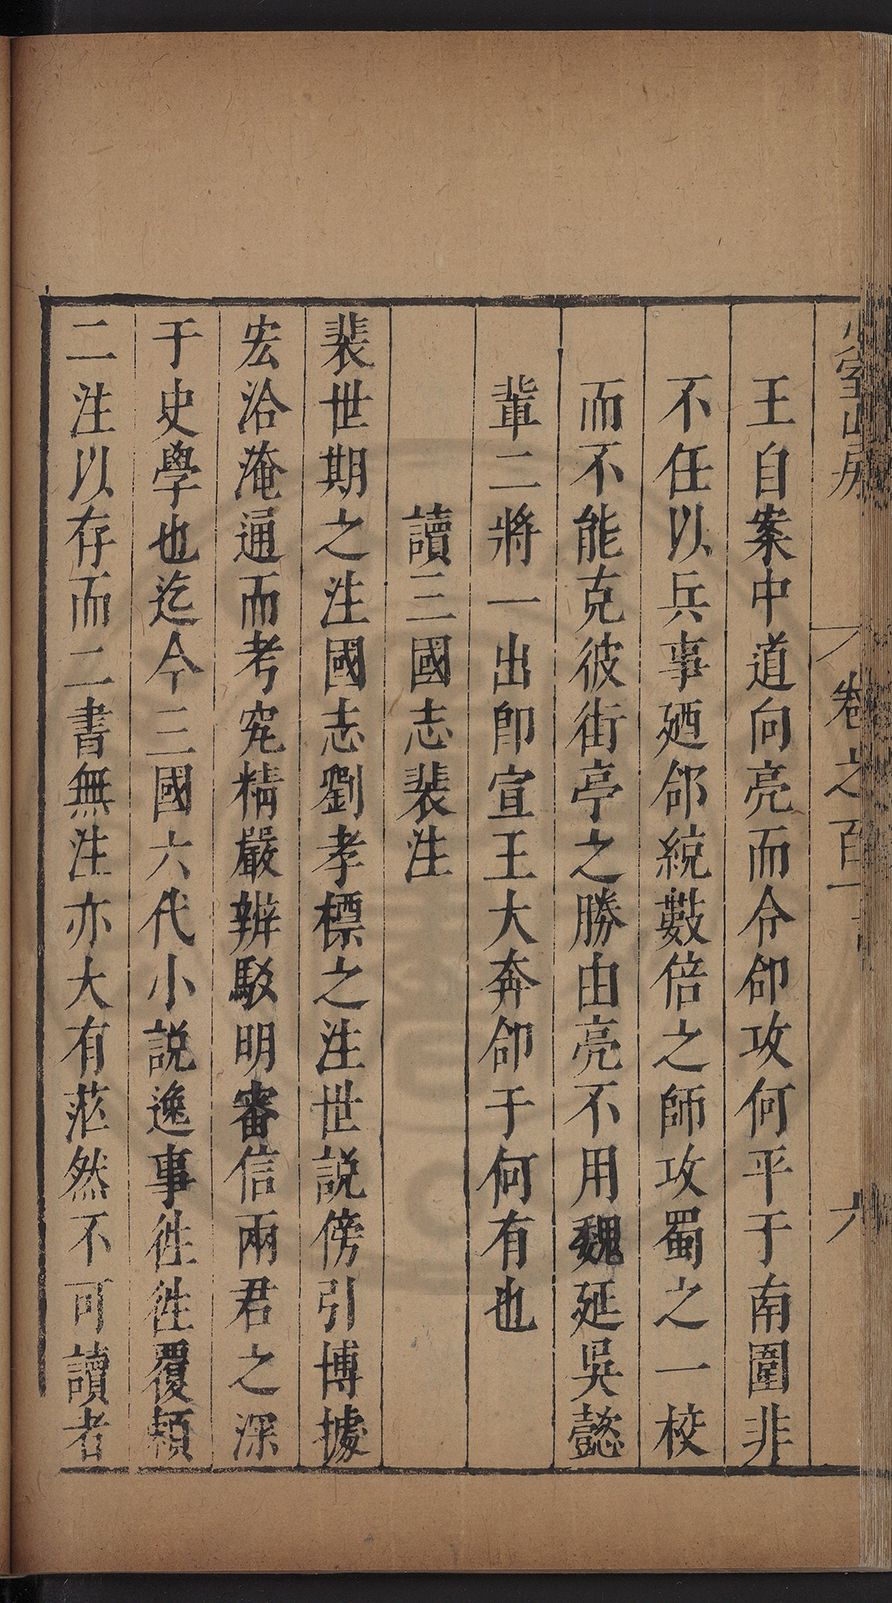 室山房 卷之百一 六
王自案中道向亮而令郃攻何平于南圍非
不任以兵事廼郃統數倍之師攻蜀之一校
而不能克彼街亭之勝由亮不用魏延吳懿
輩二將一出卽宣王大奔郃于何有也
讀三國志裴注
裴世期之注國志劉孝標之注世說傍引博據
宏洽淹通而考究精嚴辨駁明審信兩君之深
于史學也迄今三國六代小說逸事徃徃覆頼
二注以存而二書無注亦大有茫然不可讀者